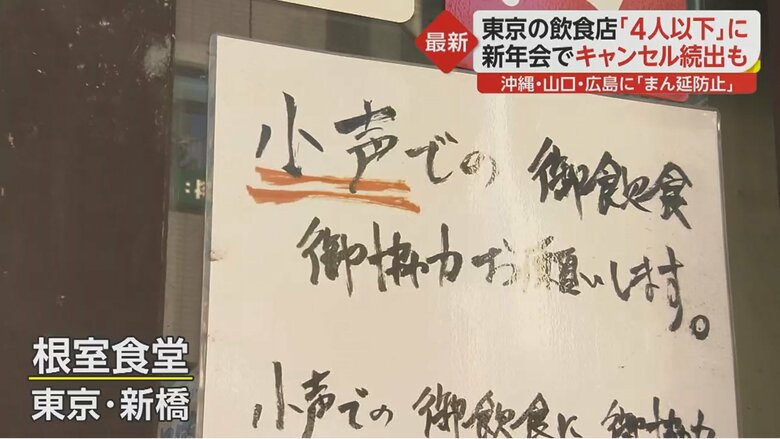 最新
東京の飲食店「4人以下」に
新年会でキャンセル続出も
沖縄・山口・広島に「まん延防止」
小声での 御飲食
御協力お願いします。
小声での 御飲食に 御協力
根室食堂
東京・新橋